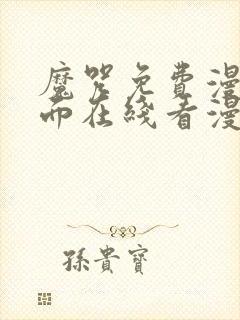 魔咒免费漫
而在线看漫
孫貴寶